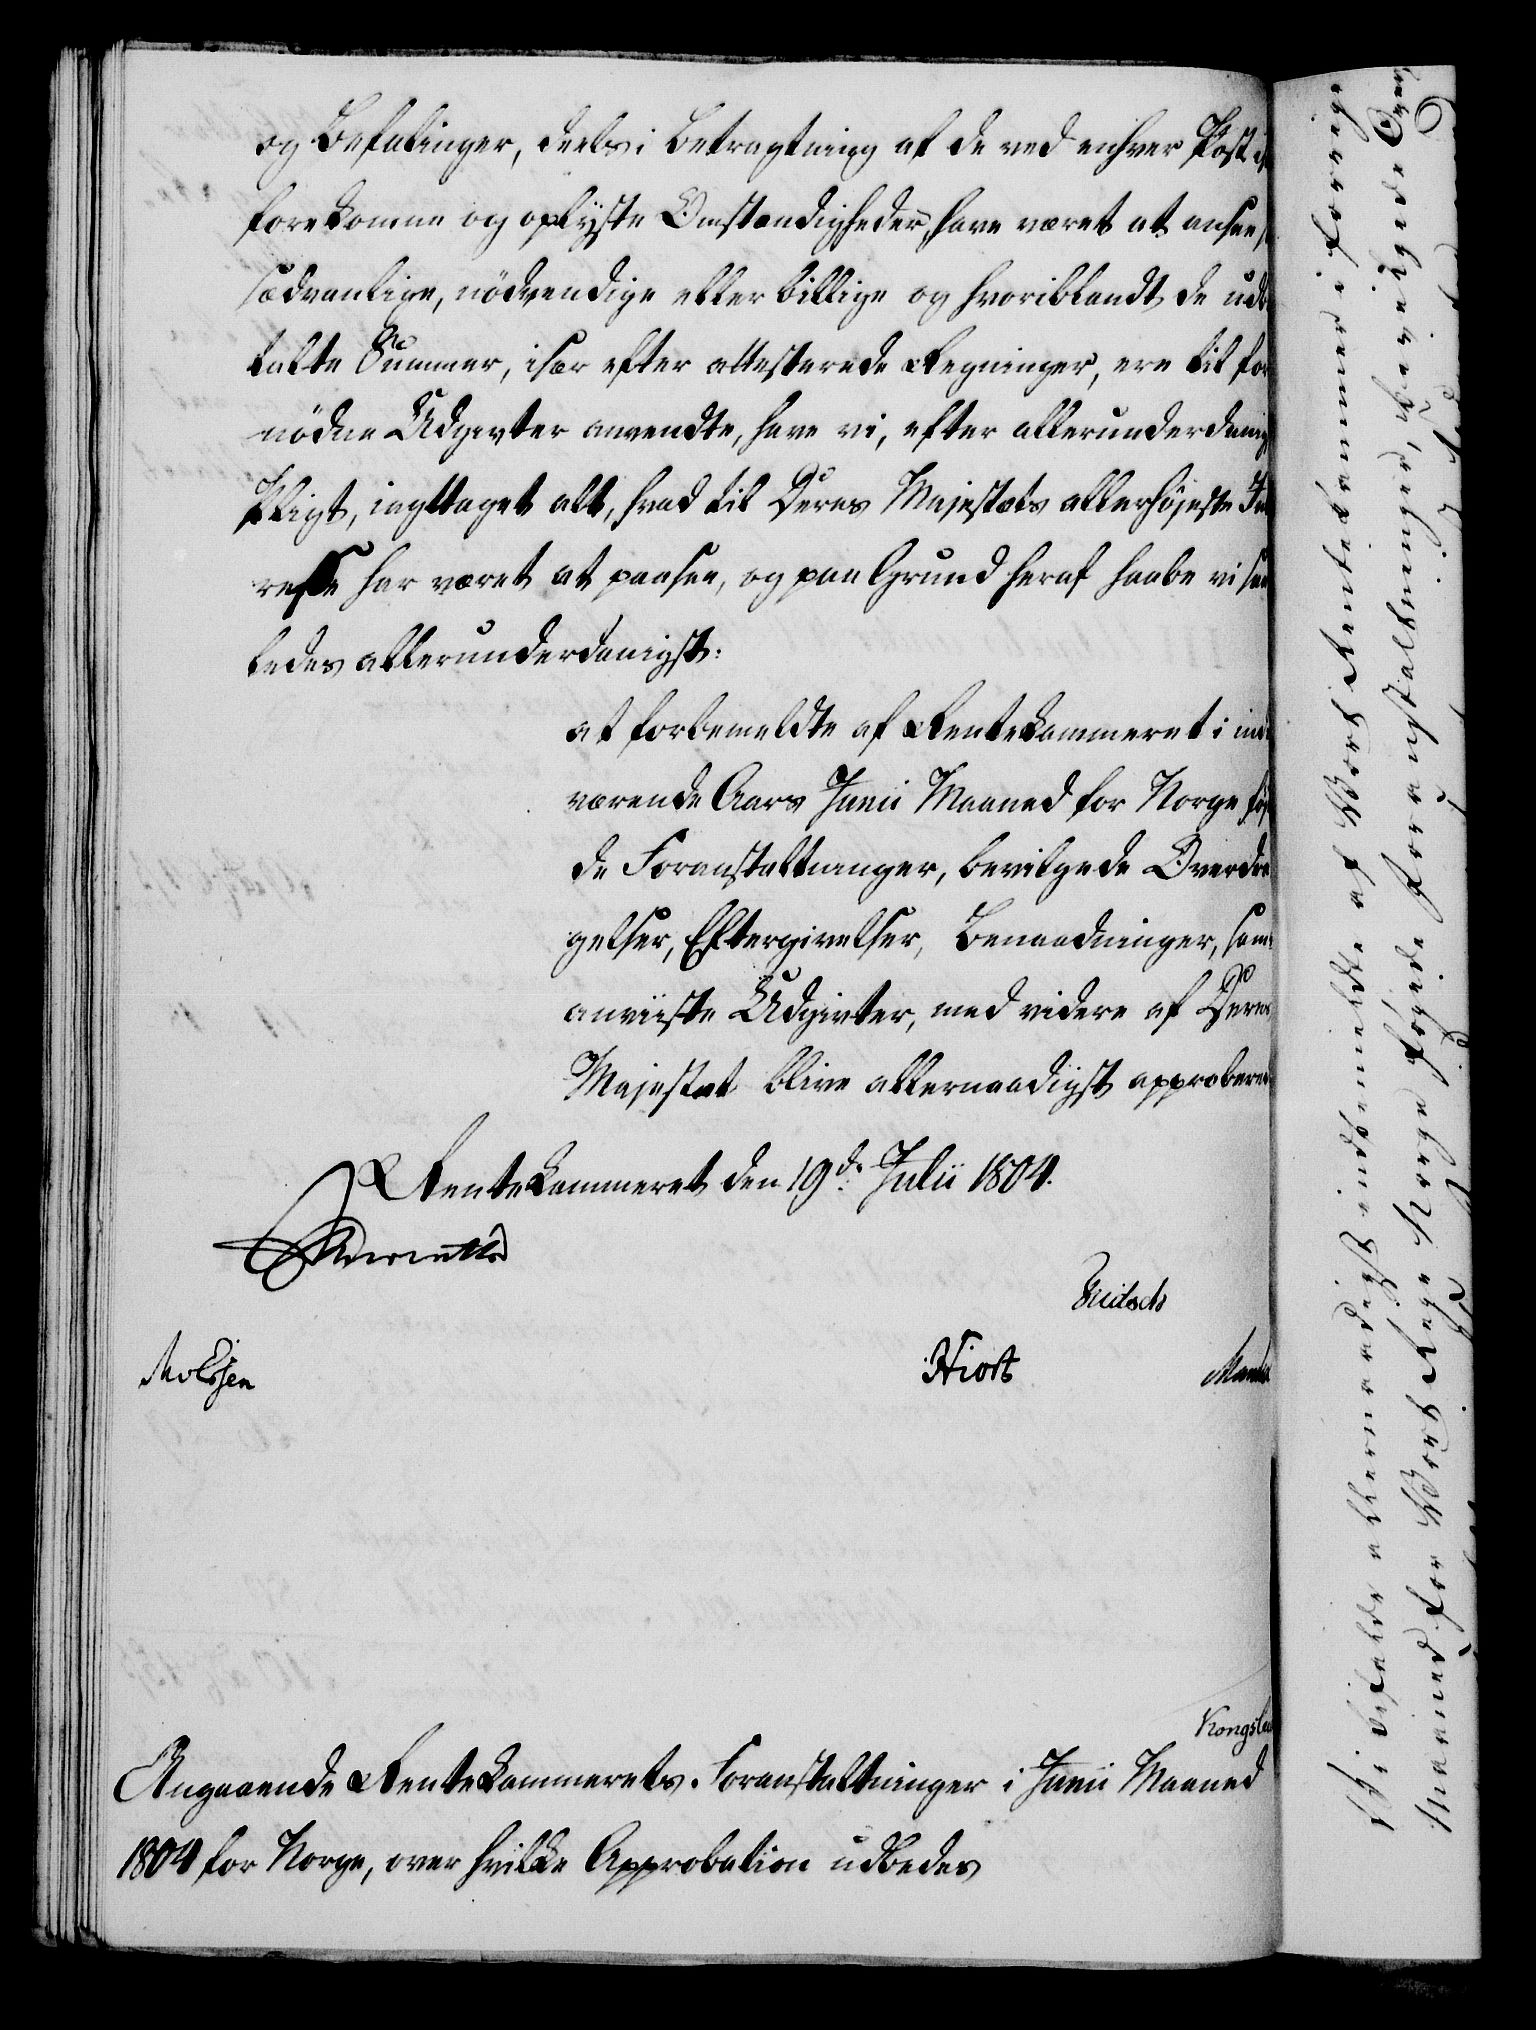 og Befalinger, deels i Betragtning af de ved enhver Post
forekomne og oplyste Omstændigheder, have været at ansee
sædvanlige, nödvendige eller billige og hvoriblandt de udb
talte Summer, især efter attesterede Regninger, ere til for
nödne Udgivter anvendte, have vi, efter allerunderdanig
Pligt, iagttaget alt, hvad til Deres Majestæts allerhöjeste Inte
resse har været at paasee, og paa Grund heraf haabe vi saa
ledes allerunderdanigst:
at forbemeldte af Rentekammeret i inde
værende Aars Junii Maaned for Norge föj
de Foranstaltninger, bevilgede Overdra
gelser, Eftergivelser, Benaadninger, samt
anviiste Udgivter, med videre af Deres
Majestæt blive allernaadigst approberet
Rentekammeret den 19de Julii 1804.
Hiort
Kongsle
Angaaende Rentekammerets Foranstaltninger i Junii Maaned
1804 for Norge, over hvilke Approbation udbedes
Vi bifalde allernaadigst indbemeldte af Vort Rentekammer i forrige
Maaned for Vort Rige Norge föjede Foranstaltninger, bevilgede Over